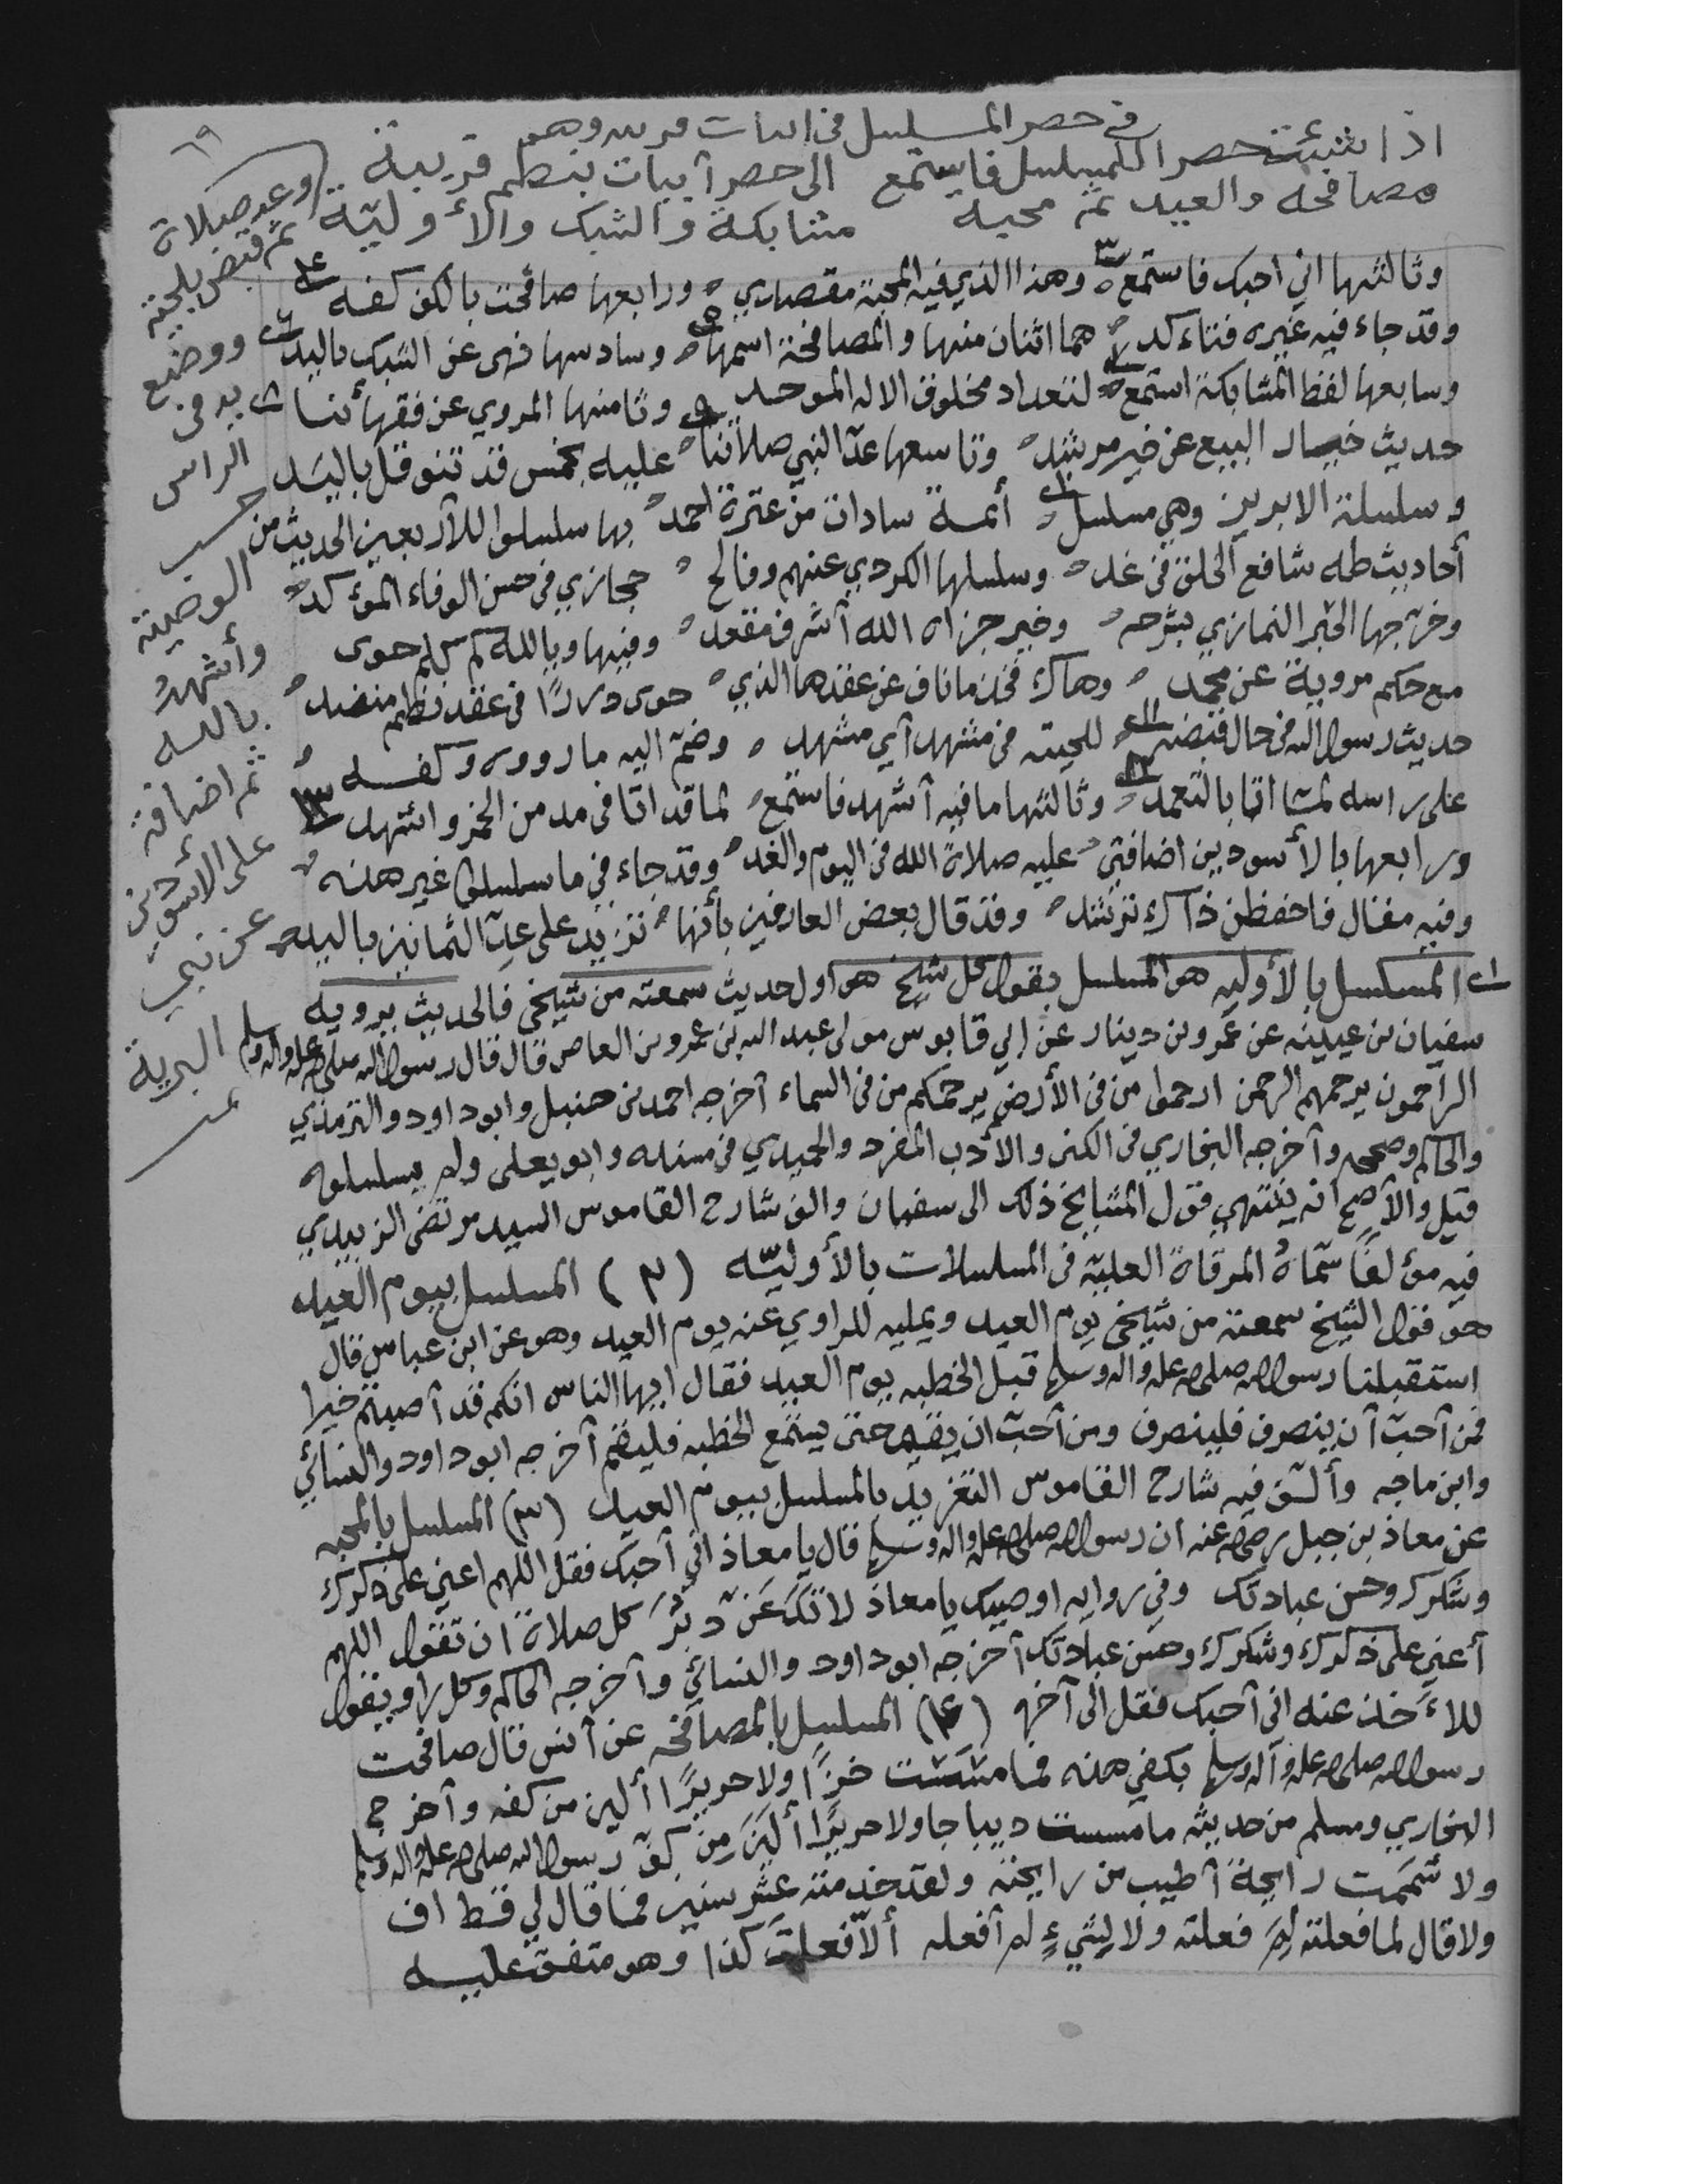 في حصر المسلسل في ابيات وهو
اذا شئت حصر المسلسل فاستمع الى حصر آبيات بنظم قريبة
مصافحه والعيد ثم محبه مشابكة والشبك والأوليّة
وعد صلاة
ثم قبض بلحيته
ووضع
يد في
الراس
حسب
الوصية
وأشهدُ
بالله
ثم اضافة
على الأسودين
عن نبي
البرية
وثالثها اني احبك فاستمع وهذا الذي فيه المحبة مقصدي ورابعها صافحت بالكف كفه
وقد جاء فيه غيره فتاءكد هما اثنان منها والمصافحة اسمها وسادسها نهى عن الشبك باليد
وسابعها لفظ المشابكة استمع لتعداد مخلوق الاله الموحد وثامنها المروي عن فقهائنا
حديث خيار البيع عن خير مرشد وتاسعها عدّ النبي صلاتنا عليه بخمس قد تنوقل باليَد
وسلسلة الابريز وهي مسلسل أئمة سادات من عترة احمد بها سلسلوا للأربعين الحديث من
أحاديث طه شافع الخلق في غد وسلسلها الكردي عنهم وفالح حجازي في حسن الوفاء المؤكد
وخرّجها الحبر النمازي بشرحه وخير جزاه الله آشرف مقعد وفيها وبالله كم كلم حوى
مع حكم مروية عن محمد وهاك فخذ ماناف عن عقدها الذي حوى دررًا في عقد نظم منضد
حديث رسول الله في حال قبضه للحيته في مشهد آي مشهد وضمّ اليه ما رووه وكفه
على راسه لمّا اتا بالتعمد وثالثها ما فيه آشهد فاستمع لما قد اتا في مد من الخمر واشهد
ورابعها بالأسودين اضافتي عليه صلاة الله في اليوم والغد وقد جاء في ما سلسلوا غير هذه
وفيه مقال فاحفظن ذاك ترشد وقد قال بعض العارفين بأنها تزيد على عدّ الثمانين باليد
المسلسل بالأوليه هو المسلسل بقول كل شيخ هو اول حديث سمعته من شيخي فالحديث يرويه
سفيان بن عيينه عن عمرو بن دينار عن ابي قابوس مولى عبد الله بن عمرو بن العاص قال قال رسول الله صلى الله عليه واله وسلم
الراحمون يرحمهم الرحمن ارحموا من في الأرض يرحمكم من في السماء آخرجه احمد بن حنبل وابو داود والترمذي
والحاكم وصححه وآخرجه البخاري في الكنى والأدب المفرد والحميدي في مسنده وابو يعلى ولم يسلسلوه
قيل والأصح انه ينتهي قول المشايخ ذلك الى سفيان والف شارح القاموس السيد مرتضى الزبيدي
فيه مؤلفًا سمّاهُ المرقاة العليّة في المسلسلات بالأوليّه (٢) المسلسل بيوم العيد
هو قول الشيخ سمعته من شيخي يوم العيد ويمليه للراوي عنه يوم العيد وهو عن ابن عباس قال
استقبلنا رسول الله صلى الله عليه واله وسلم قبل الخطبه يوم العيد فقال ايها الناس انكم قد آصبتم خيرا
فمن آحبّ آن ينصرف فلينصرف ومن آحبّ ان يقيم حتى يستمع الخطبه فليقم آخرجه ابو داود والنسائي
وابن ماجه وألّف فيه شارح القاموس التغريد بالمسلسل بيوم العيد (٣) المسلسل بالمحبه
عن معاذ بن جبل رضي الله عنه ان رسول الله صلى الله عليه واله وسلم قال يا معاذ اني آحبك فقل اللهم اعني على ذكرك
وشكرك وحسن عبادتك وفي روايه اوصيك يا معاذ لا تدَعَنّ دبُرَ كل صلاة ان تقول اللهم
آعني على ذكرك وشكرك وحسن عبادتك آخرجه ابو داود والنسائي وآخرجه الحاكم وكل راو يقول
للآخذ عنه اني آحبك فقل الى آخره (٤) المسلسل بالمصافحه عن آنس قال صافحت
رسول الله صلى الله عليه وآله وسلم بكفي هذه فما مسَسْت خزًّا ولا حريرًا ألين من كفه وآخرج
البخاري ومسلم من حديثه ما مسست ديباجا ولا حريرًا ألينَ مِن كفّ رسول الله صلى الله عليه واله وسلم
ولا شَمَمت رايحةً آطيب من رايحته ولقد خدمته عشر سنين فما قال لي قط اف
ولا قال لما فعلته لِمَ فعلته ولا لشيءٍ لم آفعله ألّا فعلتَ كذا وهو متفق عليه